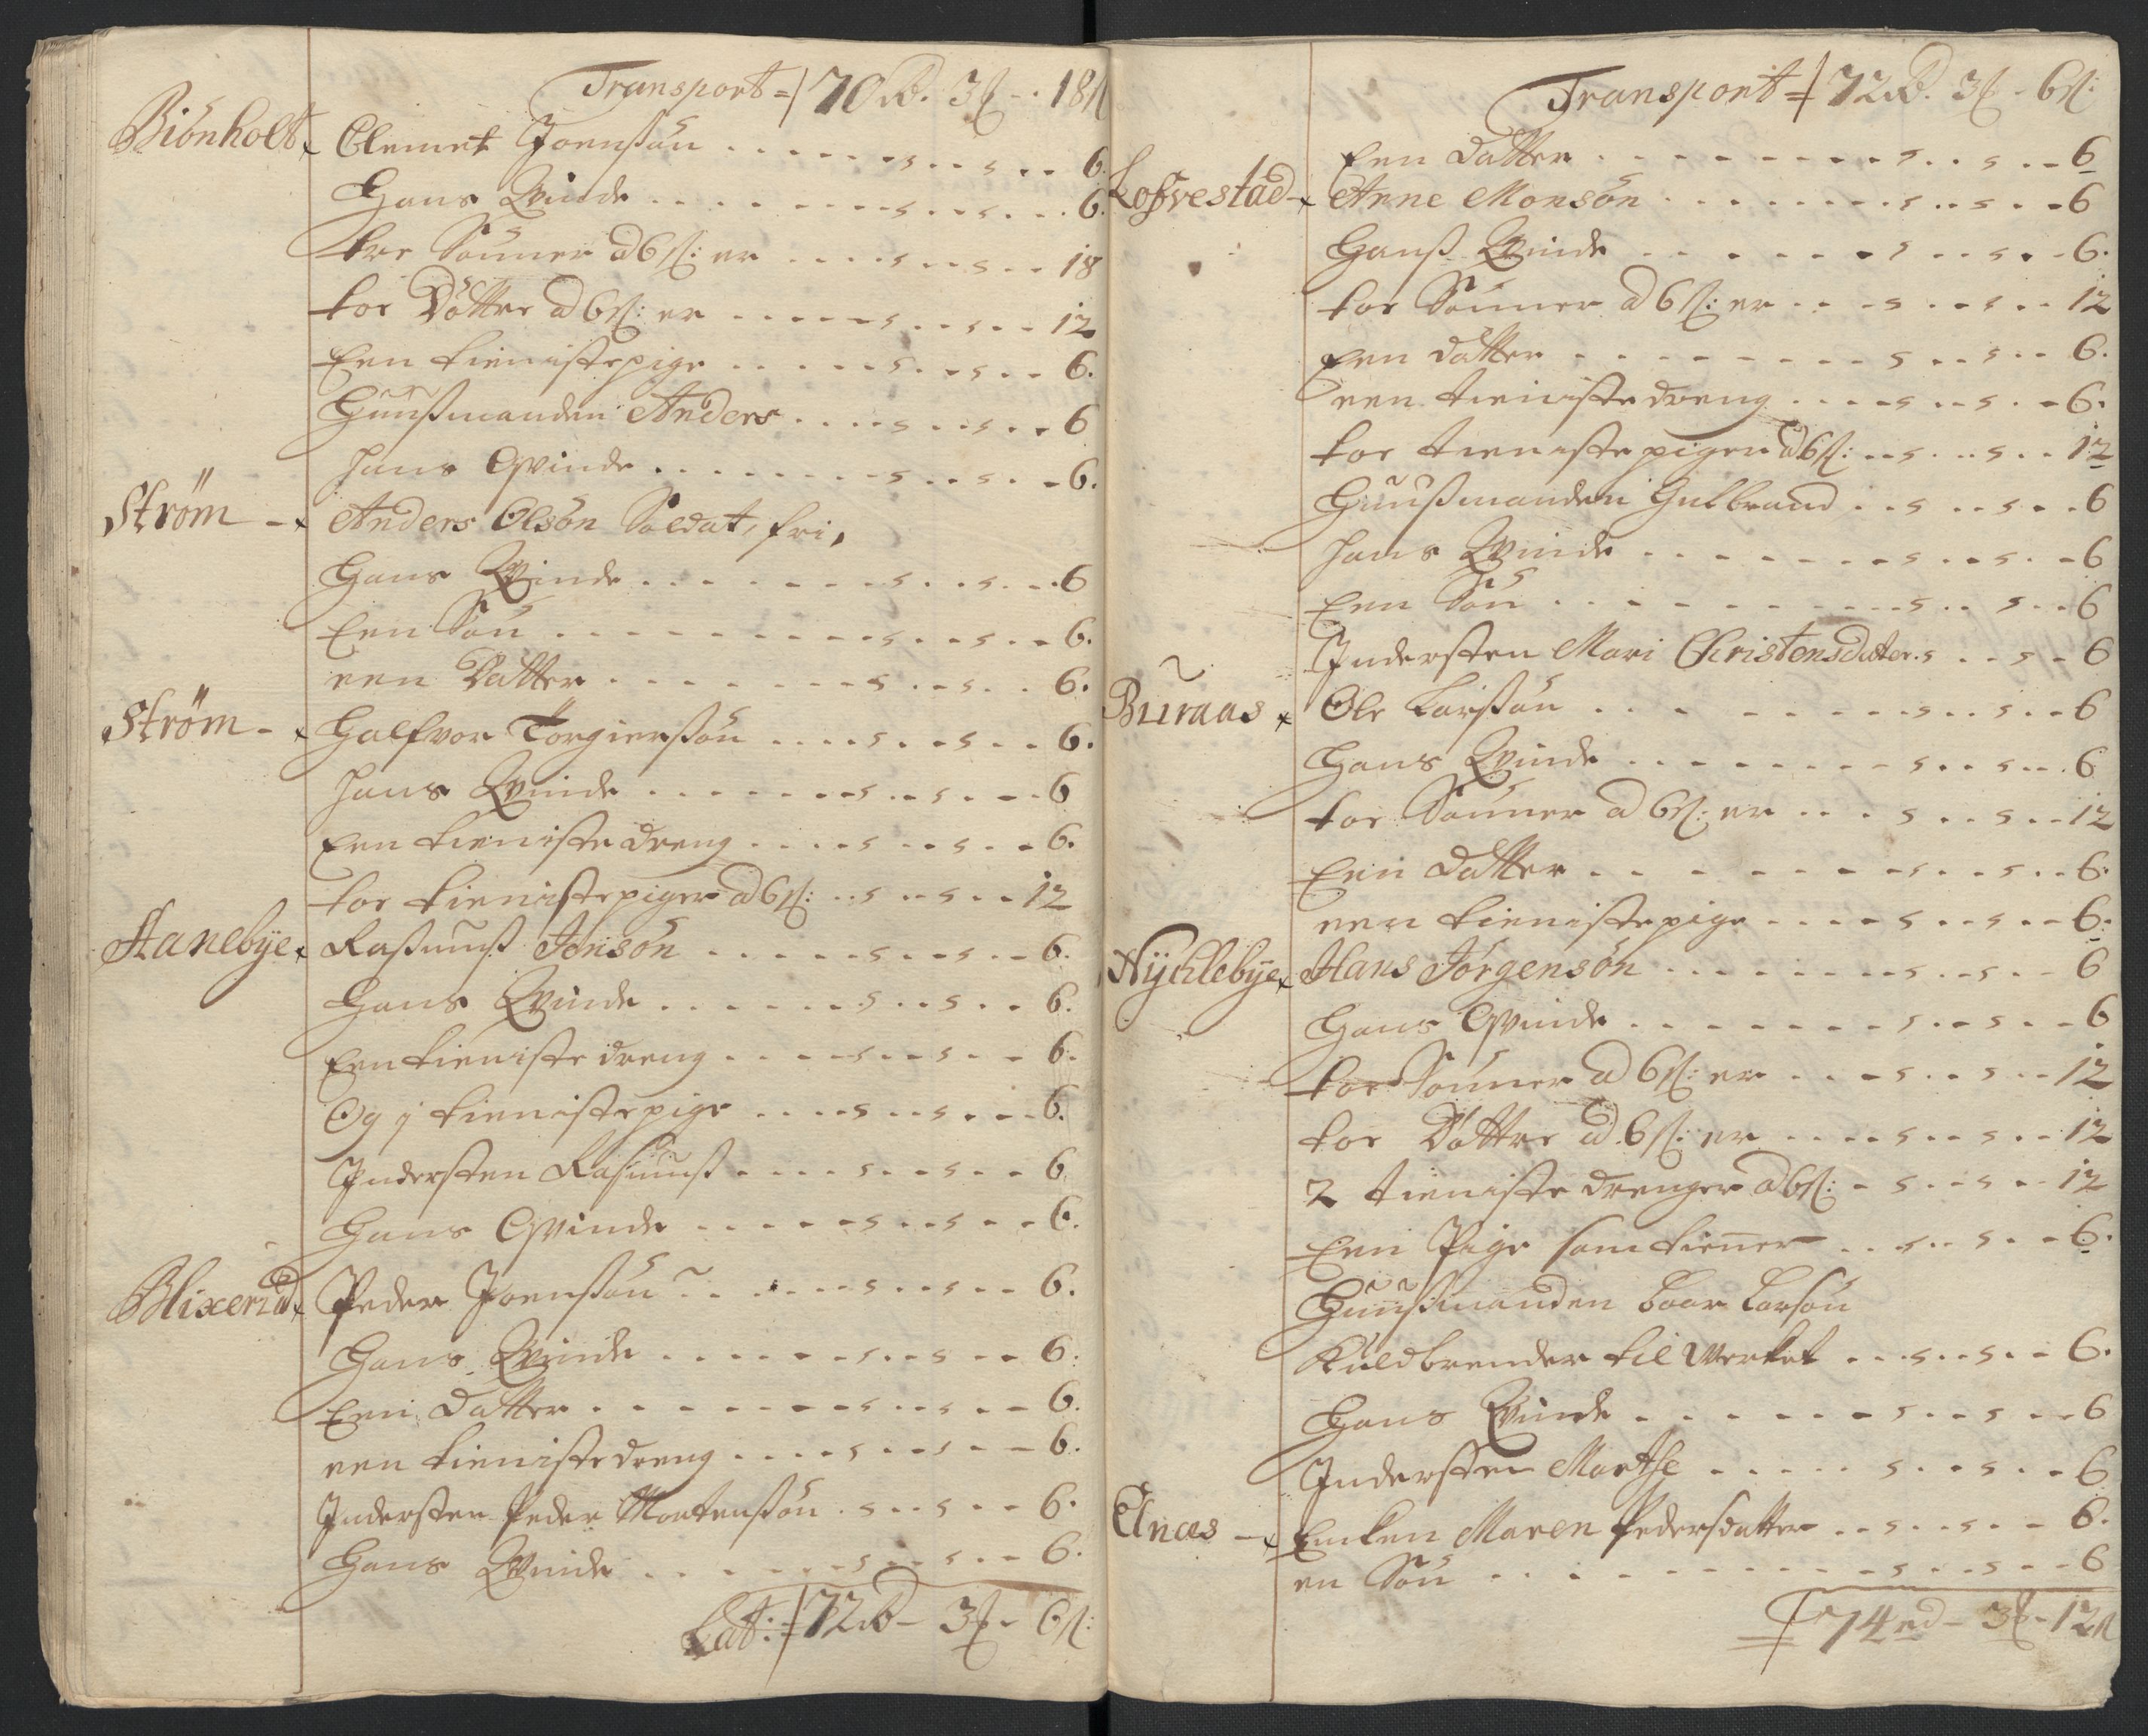 Transport = 70 rd. 3 ℔ - 18 ß
Biönholt Clemet Joenßön 6.
Hans Qvinde 6.
tre Sönner ad 6 ß: er 18
toe Döttre ad 6 ß: er 12
Een tienistepige 6.
Huußmanden Anders 6
Hans Qvinde 6.
Ström - Anders Olsön Soldat, fri,
Hans Qvinde 6
Een Sön 6.
een Datter 6.
Ström - Halfvor Törgierßön 6.
Hans Qvinde 6
Een tieniste dreng 6.
toe tienistepiger ad 6 ß: 12
Hanebÿe Raßmuß Jonsön 6.
Hans Qvinde 6.
Een tieniste dreng 6.
Og j tienistepige 6.
Indersten Rasmuß 6
Hans Qvinde 6.
Blixerud Peder Joenßön 6.
Hans Qvinde 6.
Een Datter 6.
een tienistedreng 6.
Indersten Peder Mortenßön 6.
Hans Qvinde 6.
Lat: = 72 rd - 3 ℔ - 6 ß:
Transport = 72 rd. 3 ℔ - 6 ß:
Een Datter 6
Lofvestad - Arne Monsön 6
Hanß Qvinde 6.
toe Sönner ad 6 ß: er 12
Een datter 6.
een tienistedreng 6.
toe tienistepiger ad 6 ß: 12
Huußmanden Gulbrand 6
Hans Qvinde 6
Een Sön 6
Indersten Mari Christensdater 6
Buraas Ole Larßön 6
Hans Qvinde 6
toe Sönner ad 6 ß: er 12
Een Datter 6.
een tienistepige 6.
Nÿchlebÿe Hans Jörgensön 6
Hans Qvinde 6
toe Sönner ad 6 ß: er 12
toe Döttre ad 6 ß: er 12
2 tieniste drenger ad 6 ß: 12
Een Pige som tiener 6.
Huußmanden Baar Larsön
Kuldbrender til Werket 6.
Hans Qvinde 6
Indersten Marthe 6
Elnæs - Encken Maren Pedersdatter 6.
en Sön 6
74 rd - 3 ℔ - 12 ß